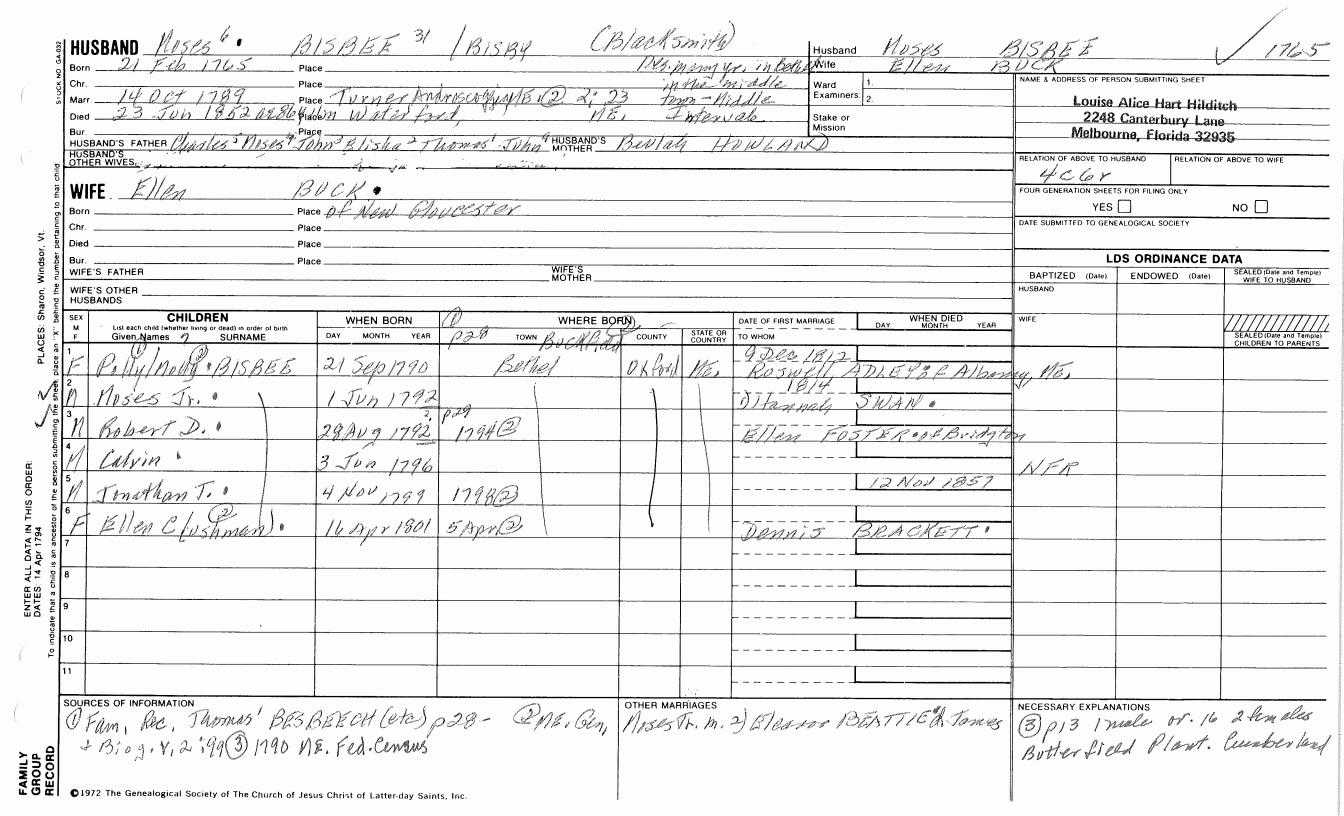 HUSBAND Moses 6 • BISBEE 31 / BISBY (Blacksmith)
Husband Moses BISBEE ✓ 1765
Wife Ellen BUCK
Born 21 Feb 1765 Place
in the middle
town - Middle
Intervale
Chr. Place
Marr 14 Oct 1789 Place Turner Androscoggin, ME, ② 2:23
Died 23 Jun 1852 Place Waterford, ME.
Bur. Place
Ward Examiners: 1. 2.
Stake or Mission
HUSBAND'S FATHER Charles 5 Moses 4 John 3 Elisha 2 Thomas 1 John HUSBAND'S MOTHER Beulah HOWLAND
HUSBAND'S OTHER WIVES
NAME & ADDRESS OF PERSON SUBMITTING SHEET
Louise Alice Hart Hilditch
2248 Canterbury Lane
Melbourne, Florida 32935
RELATION OF ABOVE TO HUSBAND RELATION OF ABOVE TO WIFE
4C6r
FOUR GENERATION SHEETS FOR FILING ONLY
YES NO
DATE SUBMITTED TO GENEALOGICAL SOCIETY
WIFE Ellen BUCK •
Born Place of New Gloucester
Chr. Place
Died Place
Bur. Place
WIFE'S FATHER WIFE'S MOTHER
WIFE'S OTHER HUSBANDS
LDS ORDINANCE DATA
BAPTIZED (Date) ENDOWED (Date) SEALED (Date and Temple) WIFE TO HUSBAND
HUSBAND
WIFE
SEALED (Date and Temple) CHILDREN TO PARENTS
SEX M F
CHILDREN
List each child (whether living or dead) in order of birth.
Given Names 7 SURNAME
WHEN BORN
DAY MONTH YEAR
① p28
WHERE BORN
TOWN COUNTY STATE OR COUNTRY
DATE OF FIRST MARRIAGE
TO WHOM
WHEN DIED
DAY MONTH YEAR
1 F Polly/Molly • BISBEE 21 Sep 1790 Bethel Oxford ME. 9 Dec 1812 Roswell ADLEY of Albany, ME.
2 M Moses Jr. • 1 Jun 1792 1814 1) Hannah SWAN •
3 M Robert D. • 28 Aug 1792 2, p29 1794 ② Ellen FOSTER • of Bridgton
4 M Calvin • 3 Jun 1796 NFR
5 M Jonathan T. • 4 Nov 1799 1798 ② 12 Nov 1857
6 F Ellen C(ushman) ② • 16 Apr 1801 5 Apr ② Dennis BRACKETT •
7
8
9
10
11
SOURCES OF INFORMATION
① Fam, Rec, Thomas' BESBEECH (etc) p28 - ② ME. Gen,
+ Biog. V, 2:99 ③ 1790 ME. Fed. Census
OTHER MARRIAGES
Moses Jr. m. 2) Eleanor BEATTIE d. James
NECESSARY EXPLANATIONS
③ p13 1 male or. 16 2 females
Butterfield Plant. Cumberland
©1972 The Genealogical Society of The Church of Jesus Christ of Latter-day Saints, Inc.
STOCK NO GA-032
ENTER ALL DATA IN THIS ORDER:
DATES: 14 Apr 1794
PLACES: Sharon, Windsor, Vt.
To indicate that a child is an ancestor of the person submitting the sheet, place an "X" behind the number pertaining to that child
FAMILY
GROUP
RECORD